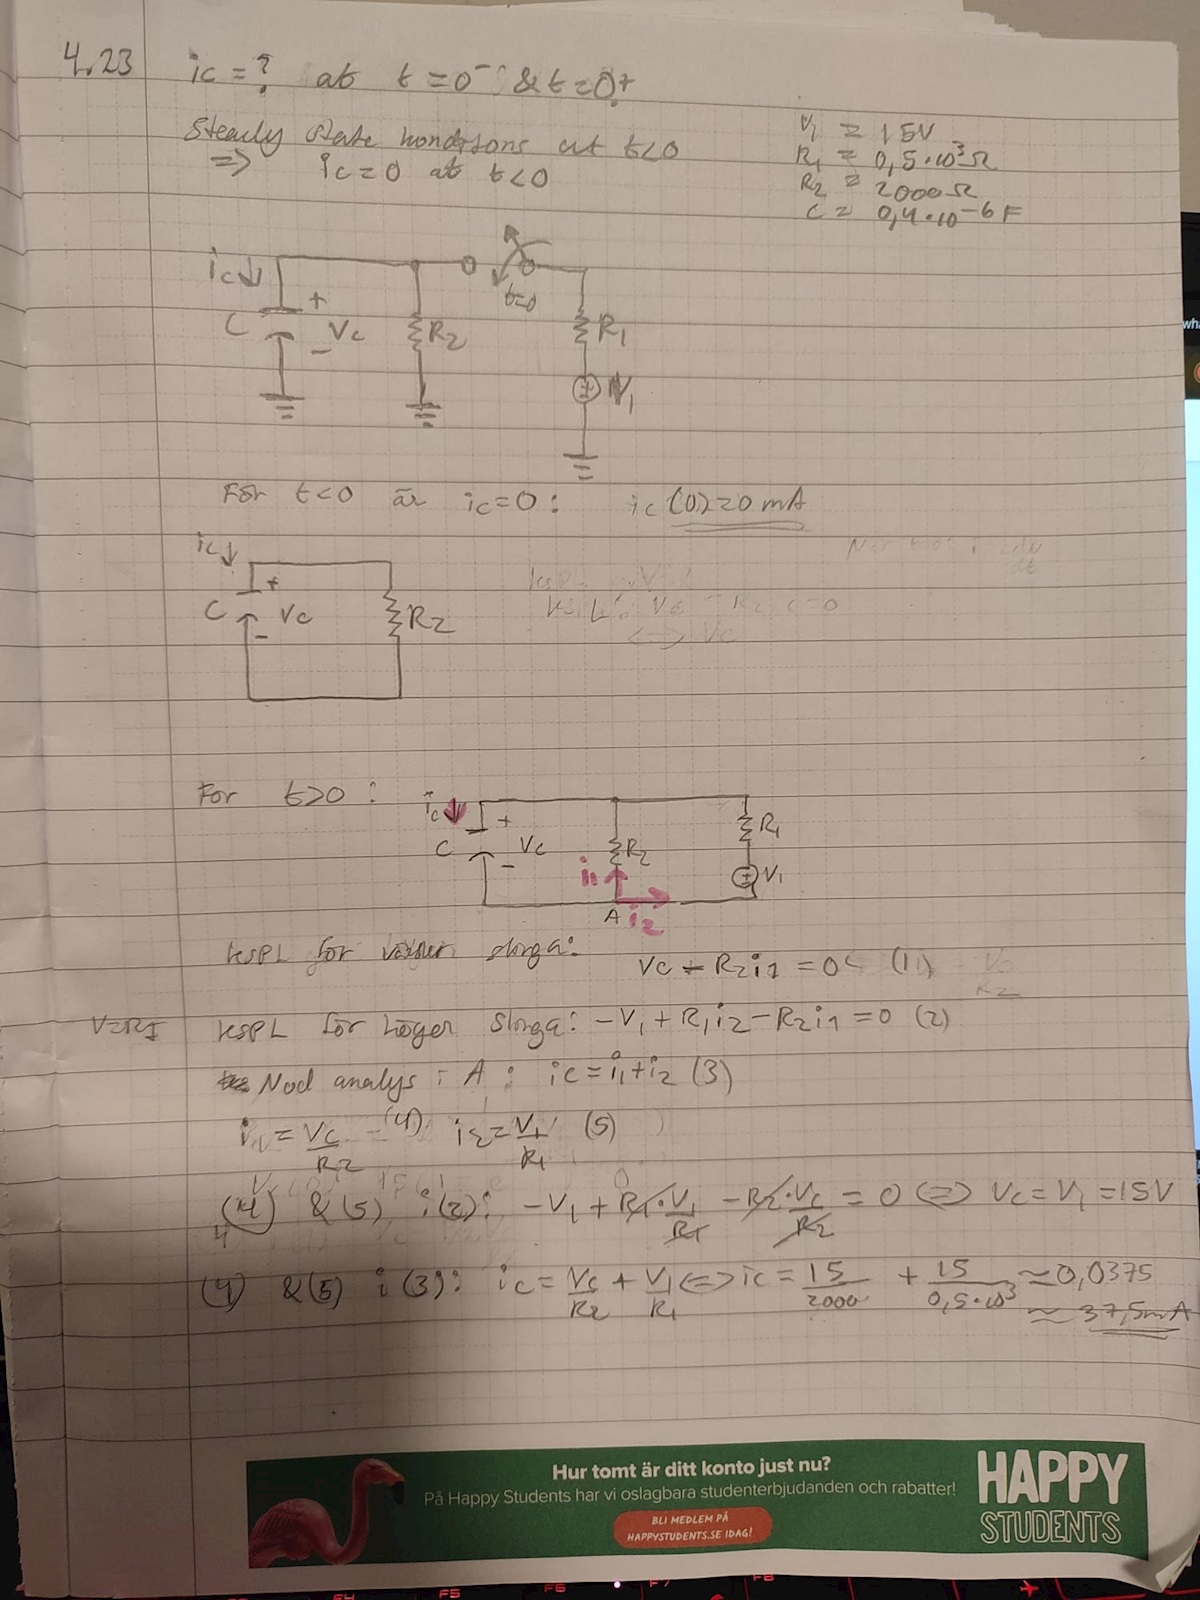 4.23 ic = ? at t = 0⁻ & t = 0⁺
Steady state konditions at t<0
=> ic = 0 at t<0
V₁ = 15V
R₁ = 0,5·10³Ω
R₂ = 2000Ω
C = 0,4·10⁻⁶F
ic↓
t=0
C + Vc - R₂ R₁
V₁
För t<0 är ic=0: ic(0)=0 mA
ic↓
C + Vc - R₂
För t>0:
ic↓ C + Vc - R₂ R₁
i₁ V₁
A i₂
KSPL för slinga: Vc - R₂i₁ = 0 (1)
V=RI KSPL för höger slinga: -V₁ + R₁i₂ - R₂i₁ = 0 (2)
Nod analys i A: ic = i₁+i₂ (3)
i₁ = Vc/R₂ (4) i₂ = V₁/R₁ (5)
(4) & (5) i (2): -V₁ + R₁·V₁/R₁ - R₂·Vc/R₂ = 0 <=> Vc = V₁ = 15V
(4) & (5) i (3): ic = Vc/R₂ + V₁/R₁ <=> ic = 15/2000 + 15/0,5·10³ ≈ 0,0375
≈ 37,5mA
Hur tomt är ditt konto just nu?
På Happy Students har vi oslagbara studenterbjudanden och rabatter!
BLI MEDLEM PÅ
HAPPYSTUDENTS.SE IDAG!
HAPPY
STUDENTS
F4 F5 F6 F7 F8